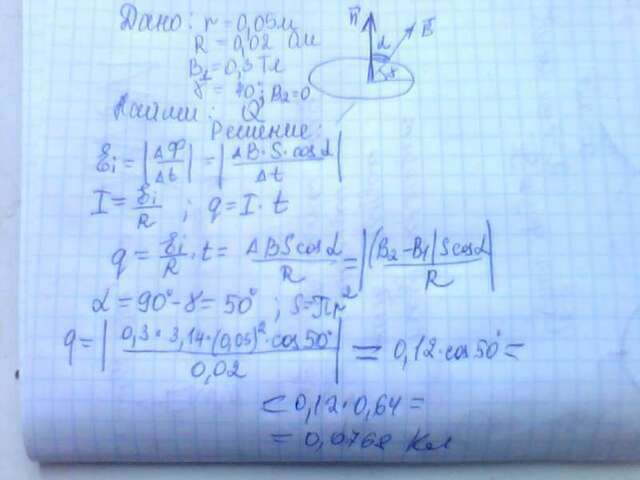 Дано: r = 0,05м
R = 0,02 Ом
B₁ = 0,3 Тл
γ = 40°; B₂=0
n⃗ α B⃗ γ
Найти: Q
Решение:
Ɛi = |ΔФ/Δt| = |ΔB·S·cosα/Δt|
I = Ɛi/R ; q = I·t
q = Ɛi/R·t = ΔBScosα/R = |(B₂-B₁)Scosα/R|
α = 90°-γ = 50° ; S=πr²
q = |0,3·3,14·(0,05)²·cos50°/0,02| = 0,12·cos50° =
= 0,12·0,64 =
= 0,0768 Кл